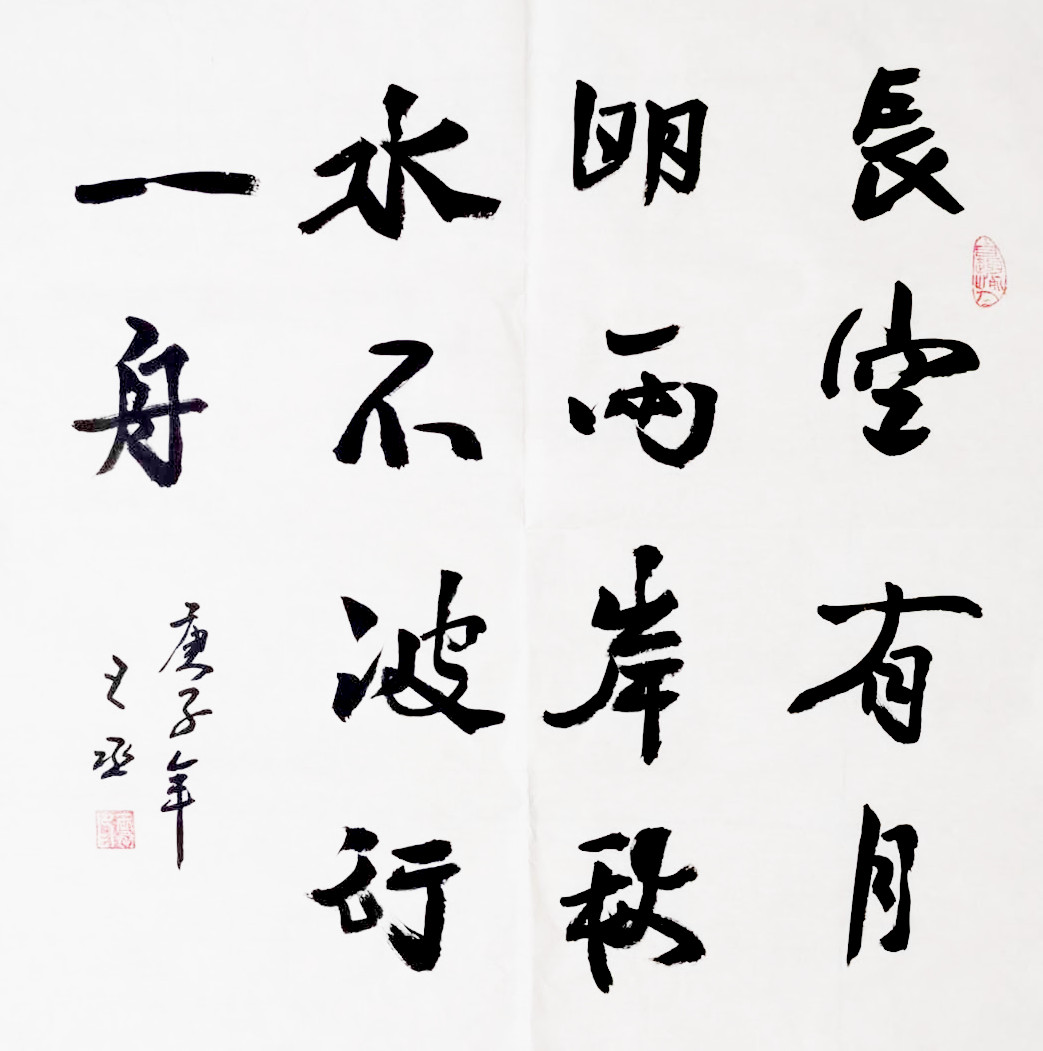 長空有月
明兩岸秋
水不波行
一舟
庚子年